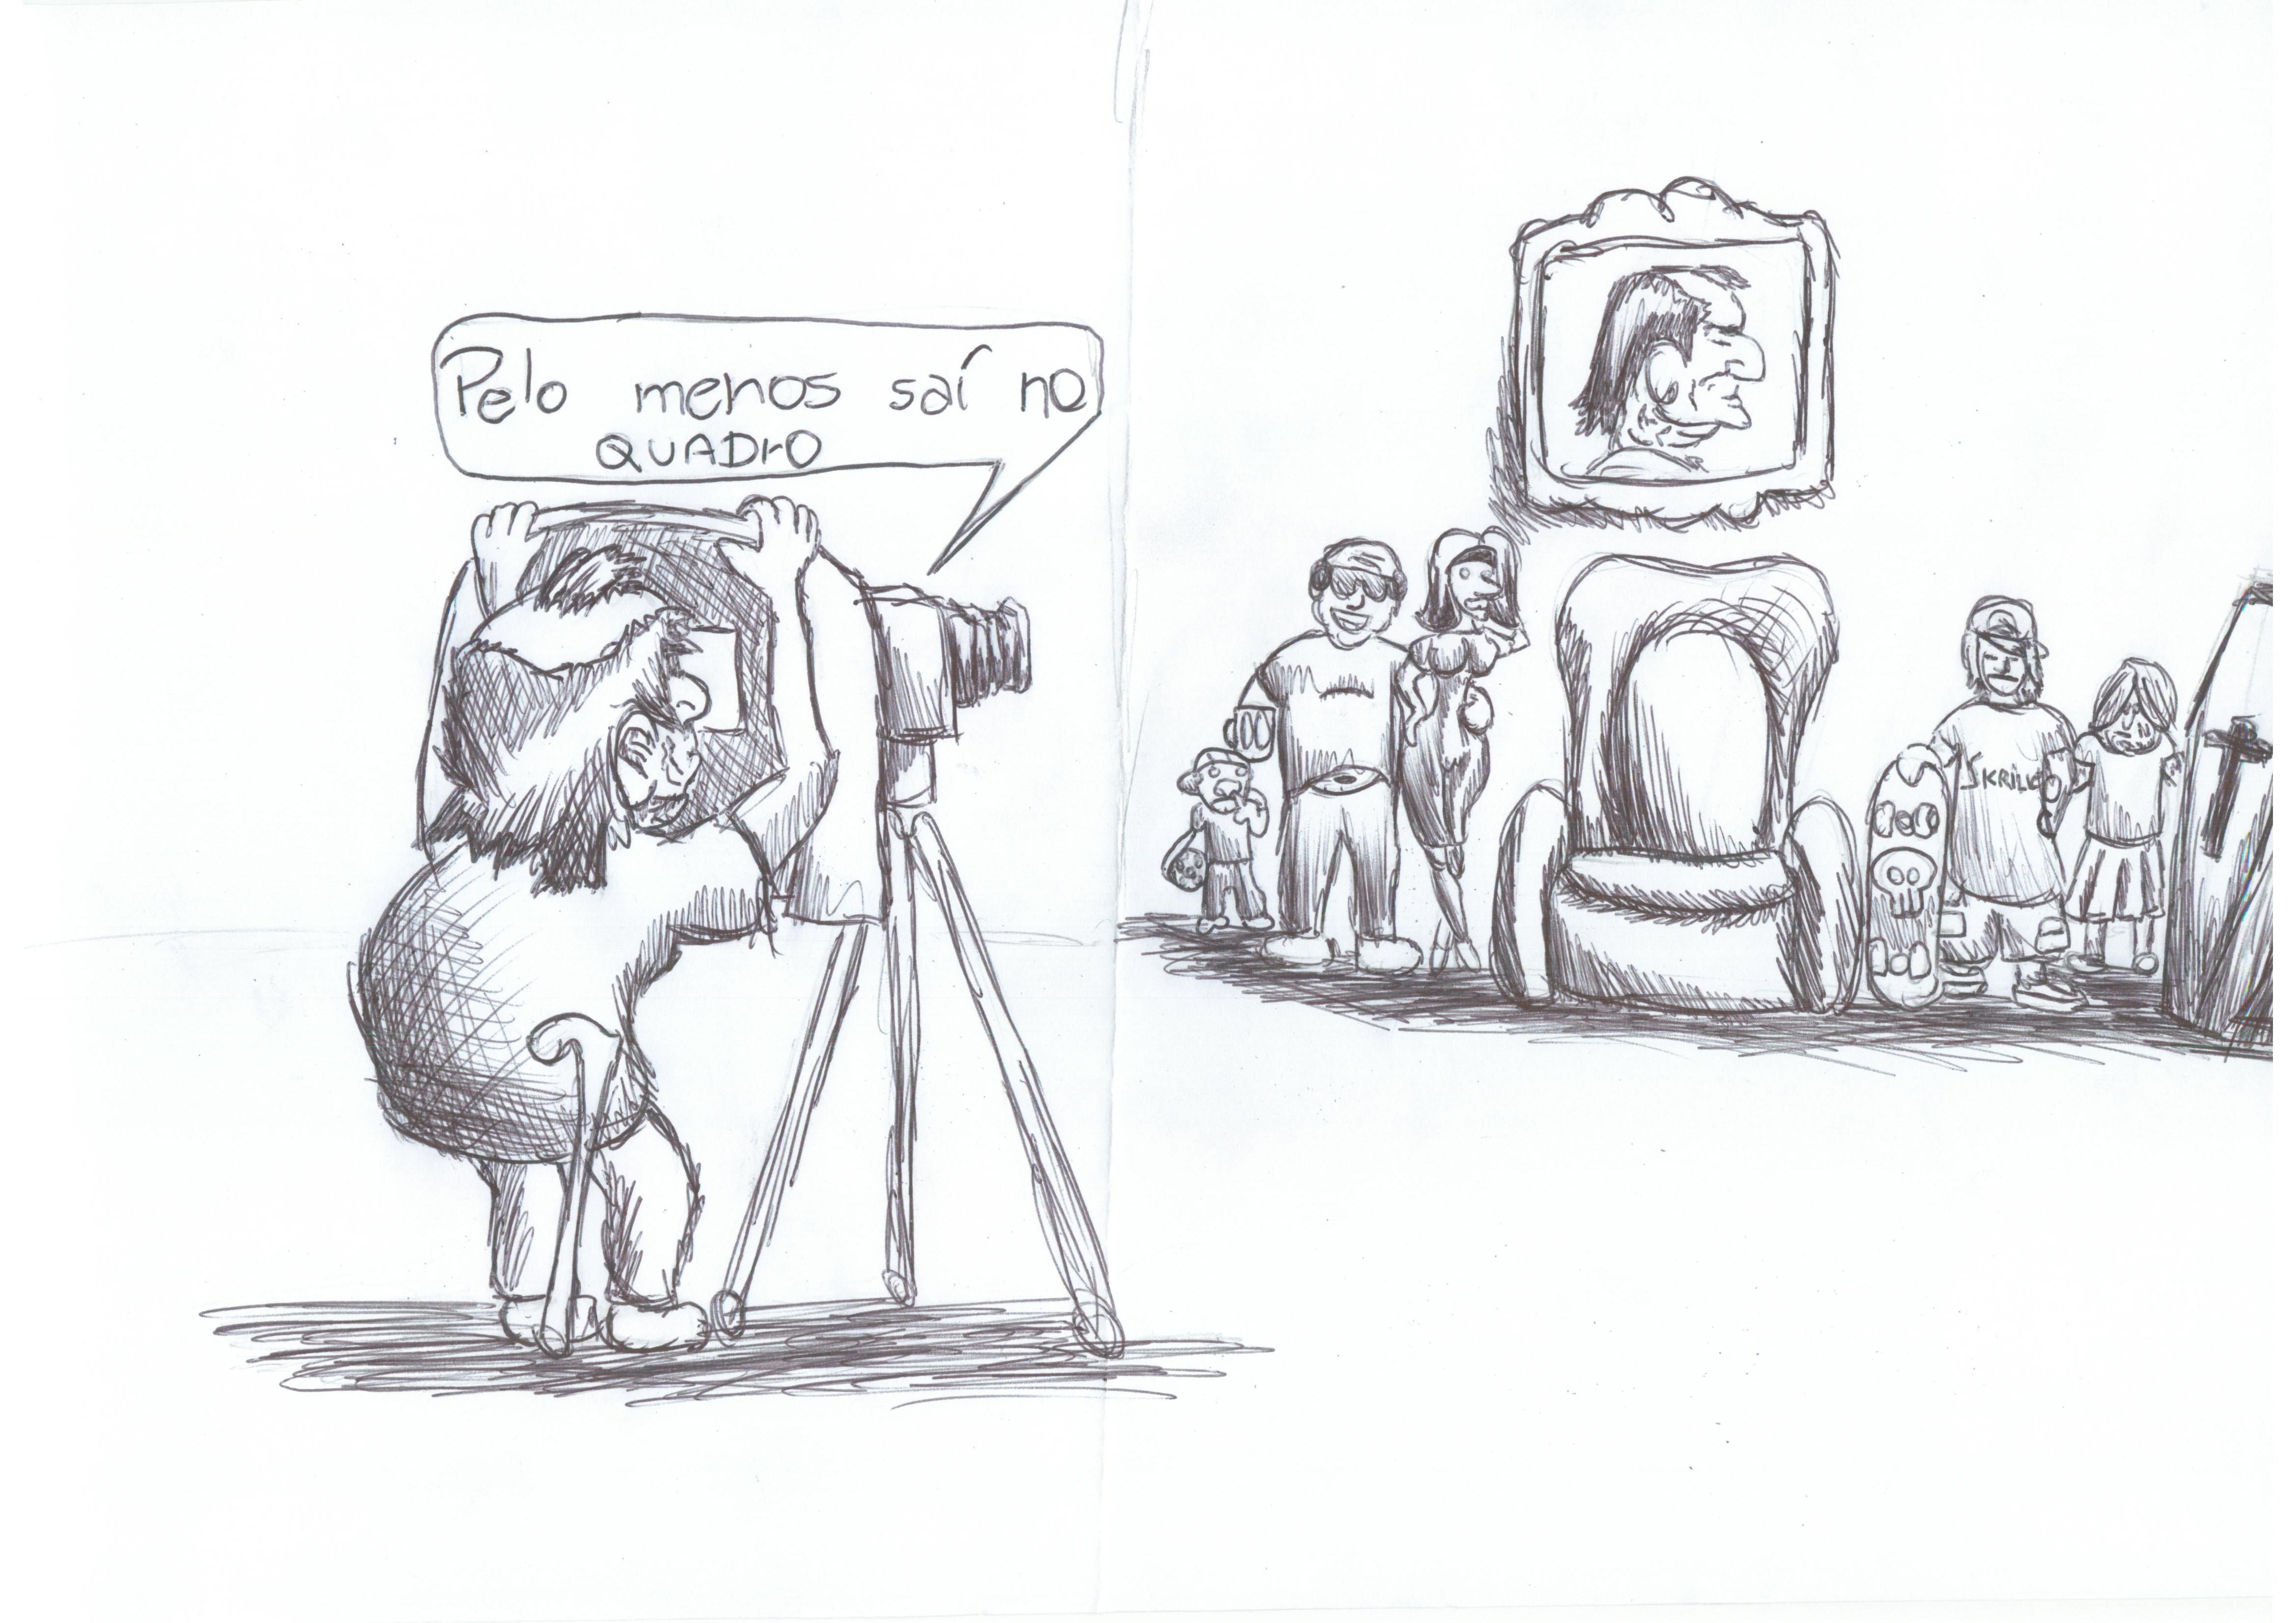 Pelo menos saí no
QUADrO
SKRILL